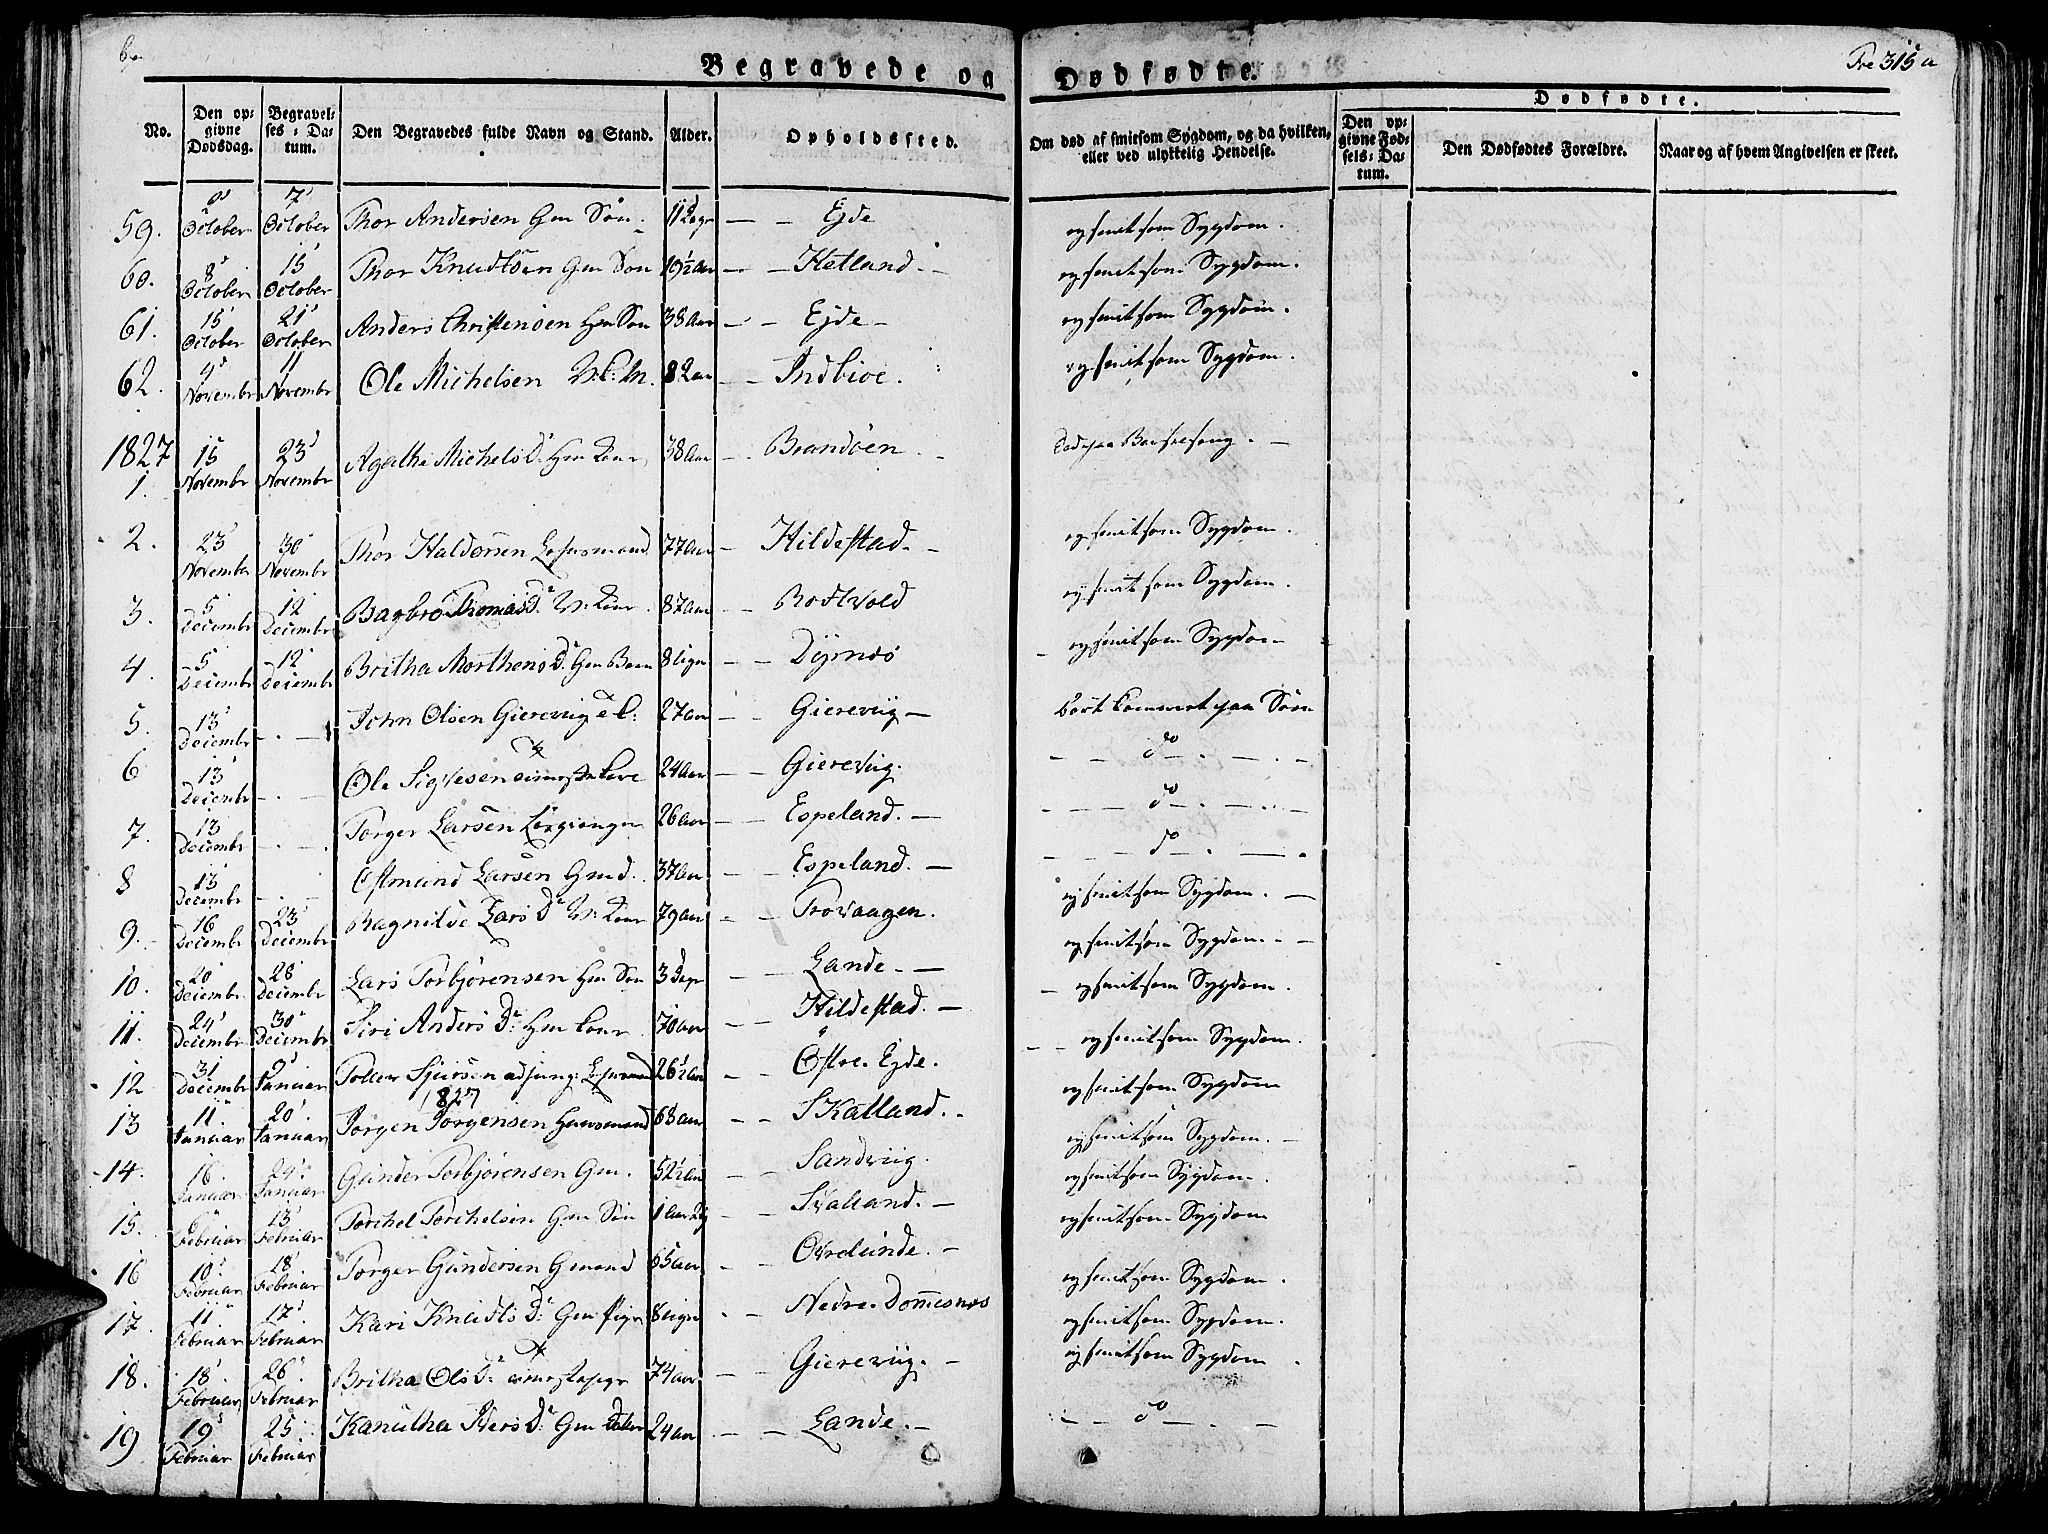 Begravede og Dødfødte.
315 a
No.
Den opgivne Dødsdag.
Begravelses-Datum.
Den Begravedes fulde Navn og Stand.
Alder.
Opholdssted.
Om død af smitsom Sygdom, og da hvilken, eller ved ulykkelig Hendelse.
Dødfødte.
Den opgivne Fødsels-Datum.
Den Dødfødtes Forældre.
Naar og af hvem Angivelsen er skeet.
59. October 7 October Thor Andersen Gm Søn 11 Dage — — Ejde ej smitsom Sygdom.
60. 8 October 15 October Thor Knudtsen Gm Søn 19½ Aar — — Hetland. — ej smitsom Sygdom.
61. 15 October 21 October Anders Christensen Hm Søn 38 Aar — — Ejde — ej smitsom Sygdom.
62. 4 Novembr 11 Novembr Ole Michelsen 82 aar — — Indbioe. ej smitsom Sygdom.
1827
1. 15 Novembr 23 Novembr Agatha Michels D. Hm Kone 38 Aar — Brandøen død paa Barselseng. —
2. 23 Novembr 30 Novembr Thor Haldorsen 77 aar — Hildestad. — ej smitsom Sygdom.
3. 5 Decembr 12 Decembr Bagbro Thomas D. Kone 87 aar — — Bostvold ej smitsom Sygdom.
4. 5 Decembr 12 Decembr Britha Morthens D. Gm Barn 8 Uger — — Dyrnæs — ej smitsom Sygdom
5. 13 Decembr — . — John Olsen Gierevig 27 aar — — Gierevig — bort kommet paa Søen
6 13 Decembr — . — Ole Sigvesen 24 Aar — — Gierevig. — — do — . — . —
7. 13 Decembr — . — Torger Larsen 26 aar — — Espeland. — — — — do — . — . —
8 13 Decembr — . — Ostmund Larsen Gmd. 37 Aar — — Espeland. — — — — do — . — .
9. 16 Decembr 23 Decembr Ragnilde Lars D. Kone 79 aar — — Trovaagen. ej smitsom Sygdom. —
10. 20 Decembr 28 Decembr Lars Torbjørensen Hm Søn 3 Dage — Lande. — ej smitsom Sygdom. —
11. 24 Decembr 30 Decembr Siri Anders D. Hm Kone 70 aar — — Hildestad. — — ej smitsom Sygdom.
12 31 Decembr Januar Tollev Sjursen 26½ Aar — — Østre Ejde. — — ej smitsom Sygdom.
1827
13 11 Januar 20 Januar Jørgen Jørgensen Huusmand 68 aar — — Skatland. — ej smitsom Sygdom
14. 16. Januar 24 Januar Gunder Torbjørensen Gm. 52½ Aar — — Sandviig. ej smitsom Sygdom. —
15. 6 Februar 13 Februar Torchel Torchelsen Gm Søn 1 Aar — Svalland. — ej smitsom Sygdom.
16 10 Februar 18 Februar Torger Gundersen Gmand 65 aar — — Øvrelunde. — ej smitsom Sygdom
17. 11 Februar 17 Februar Kari Knudts D. Gm Pige 8 Uger Nedre Dommesnæs ej smitsom Sygdom.
18. 18 Februar 26 Februar Britha Ols D. 74 aar — — Gierevig. — ej smitsom Sygdom.
19 19 Februar 25 Februar Kanutha Ivers D. Gm Datter 24 aar — — Lande. — ej smitsom Sygdom
— — do — . —